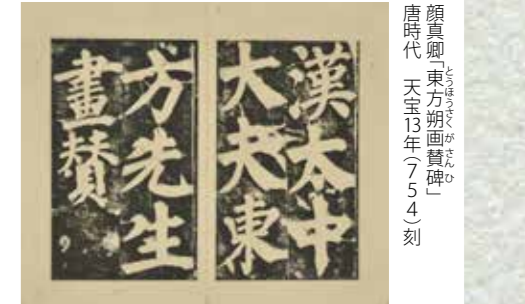 顔真卿「東方朔画賛碑」
とうほうさくがさんひ
唐時代　天宝13年（754）刻
漢太中
大夫東
方先生
畫賛